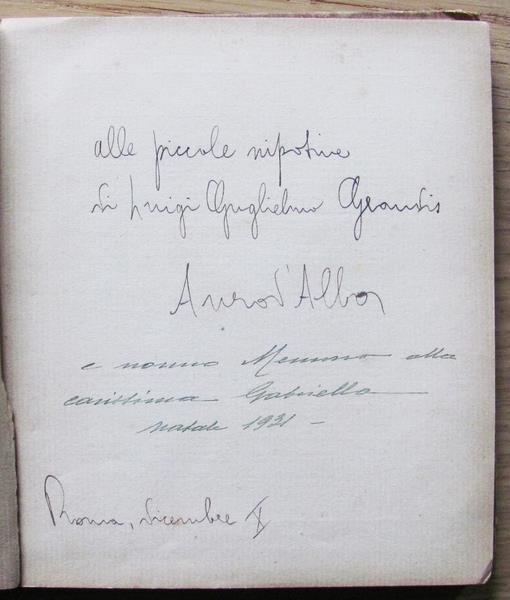 alle piccole nipotine
di Luigi Guglielmo Grandis
Auro d'Alba
e nonno Memmo alla
carissima Gabriella
natale 1931 -
Roma, dicembre X